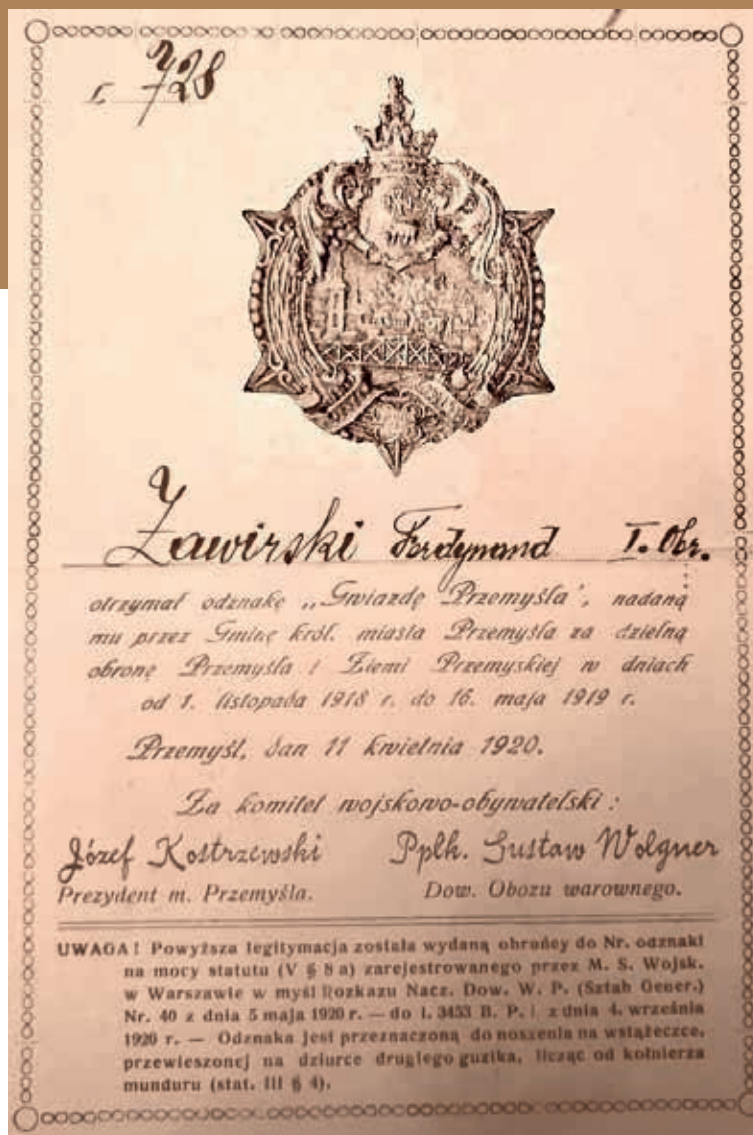 L. 728
Zawirski Ferdynand I. Obr.
otrzymał odznakę „Gwiazdę Przemyśla', nadaną
mu przez Gminę król. miasta Przemyśla za dzielną
obronę Przemyśla i Ziemi Przemyskiej w dniach
od 1. listopada 1918 r. do 16. maja 1919 r.
Przemyśl, dan 11 kwietnia 1920.
Za komitet wojskowo-obywatelski :
Józef Kostrzewski Pplk. Gustaw Wolgner
Prezydent m. Przemyśla. Dow. Obozu warownego.
UWAGA! Powyższa legitymacja została wydaną obrońcy do Nr. odznaki
na mocy statutu (V § 8 a) zarejestrowanego przez M. S. Wojsk.
w Warszawie w myśl Rozkazu Nacz. Dow. W. P. (Sztab Gener.)
Nr. 40 z dnia 5 maja 1920 r. — do l. 3453 B. P. i z dnia 4. września
1920 r. — Odznaka jest przeznaczoną do noszenia na wstążeczce,
przewieszonej na dziurce drugiego guzika, licząc od kołnierza
munduru (stat. III § 4).